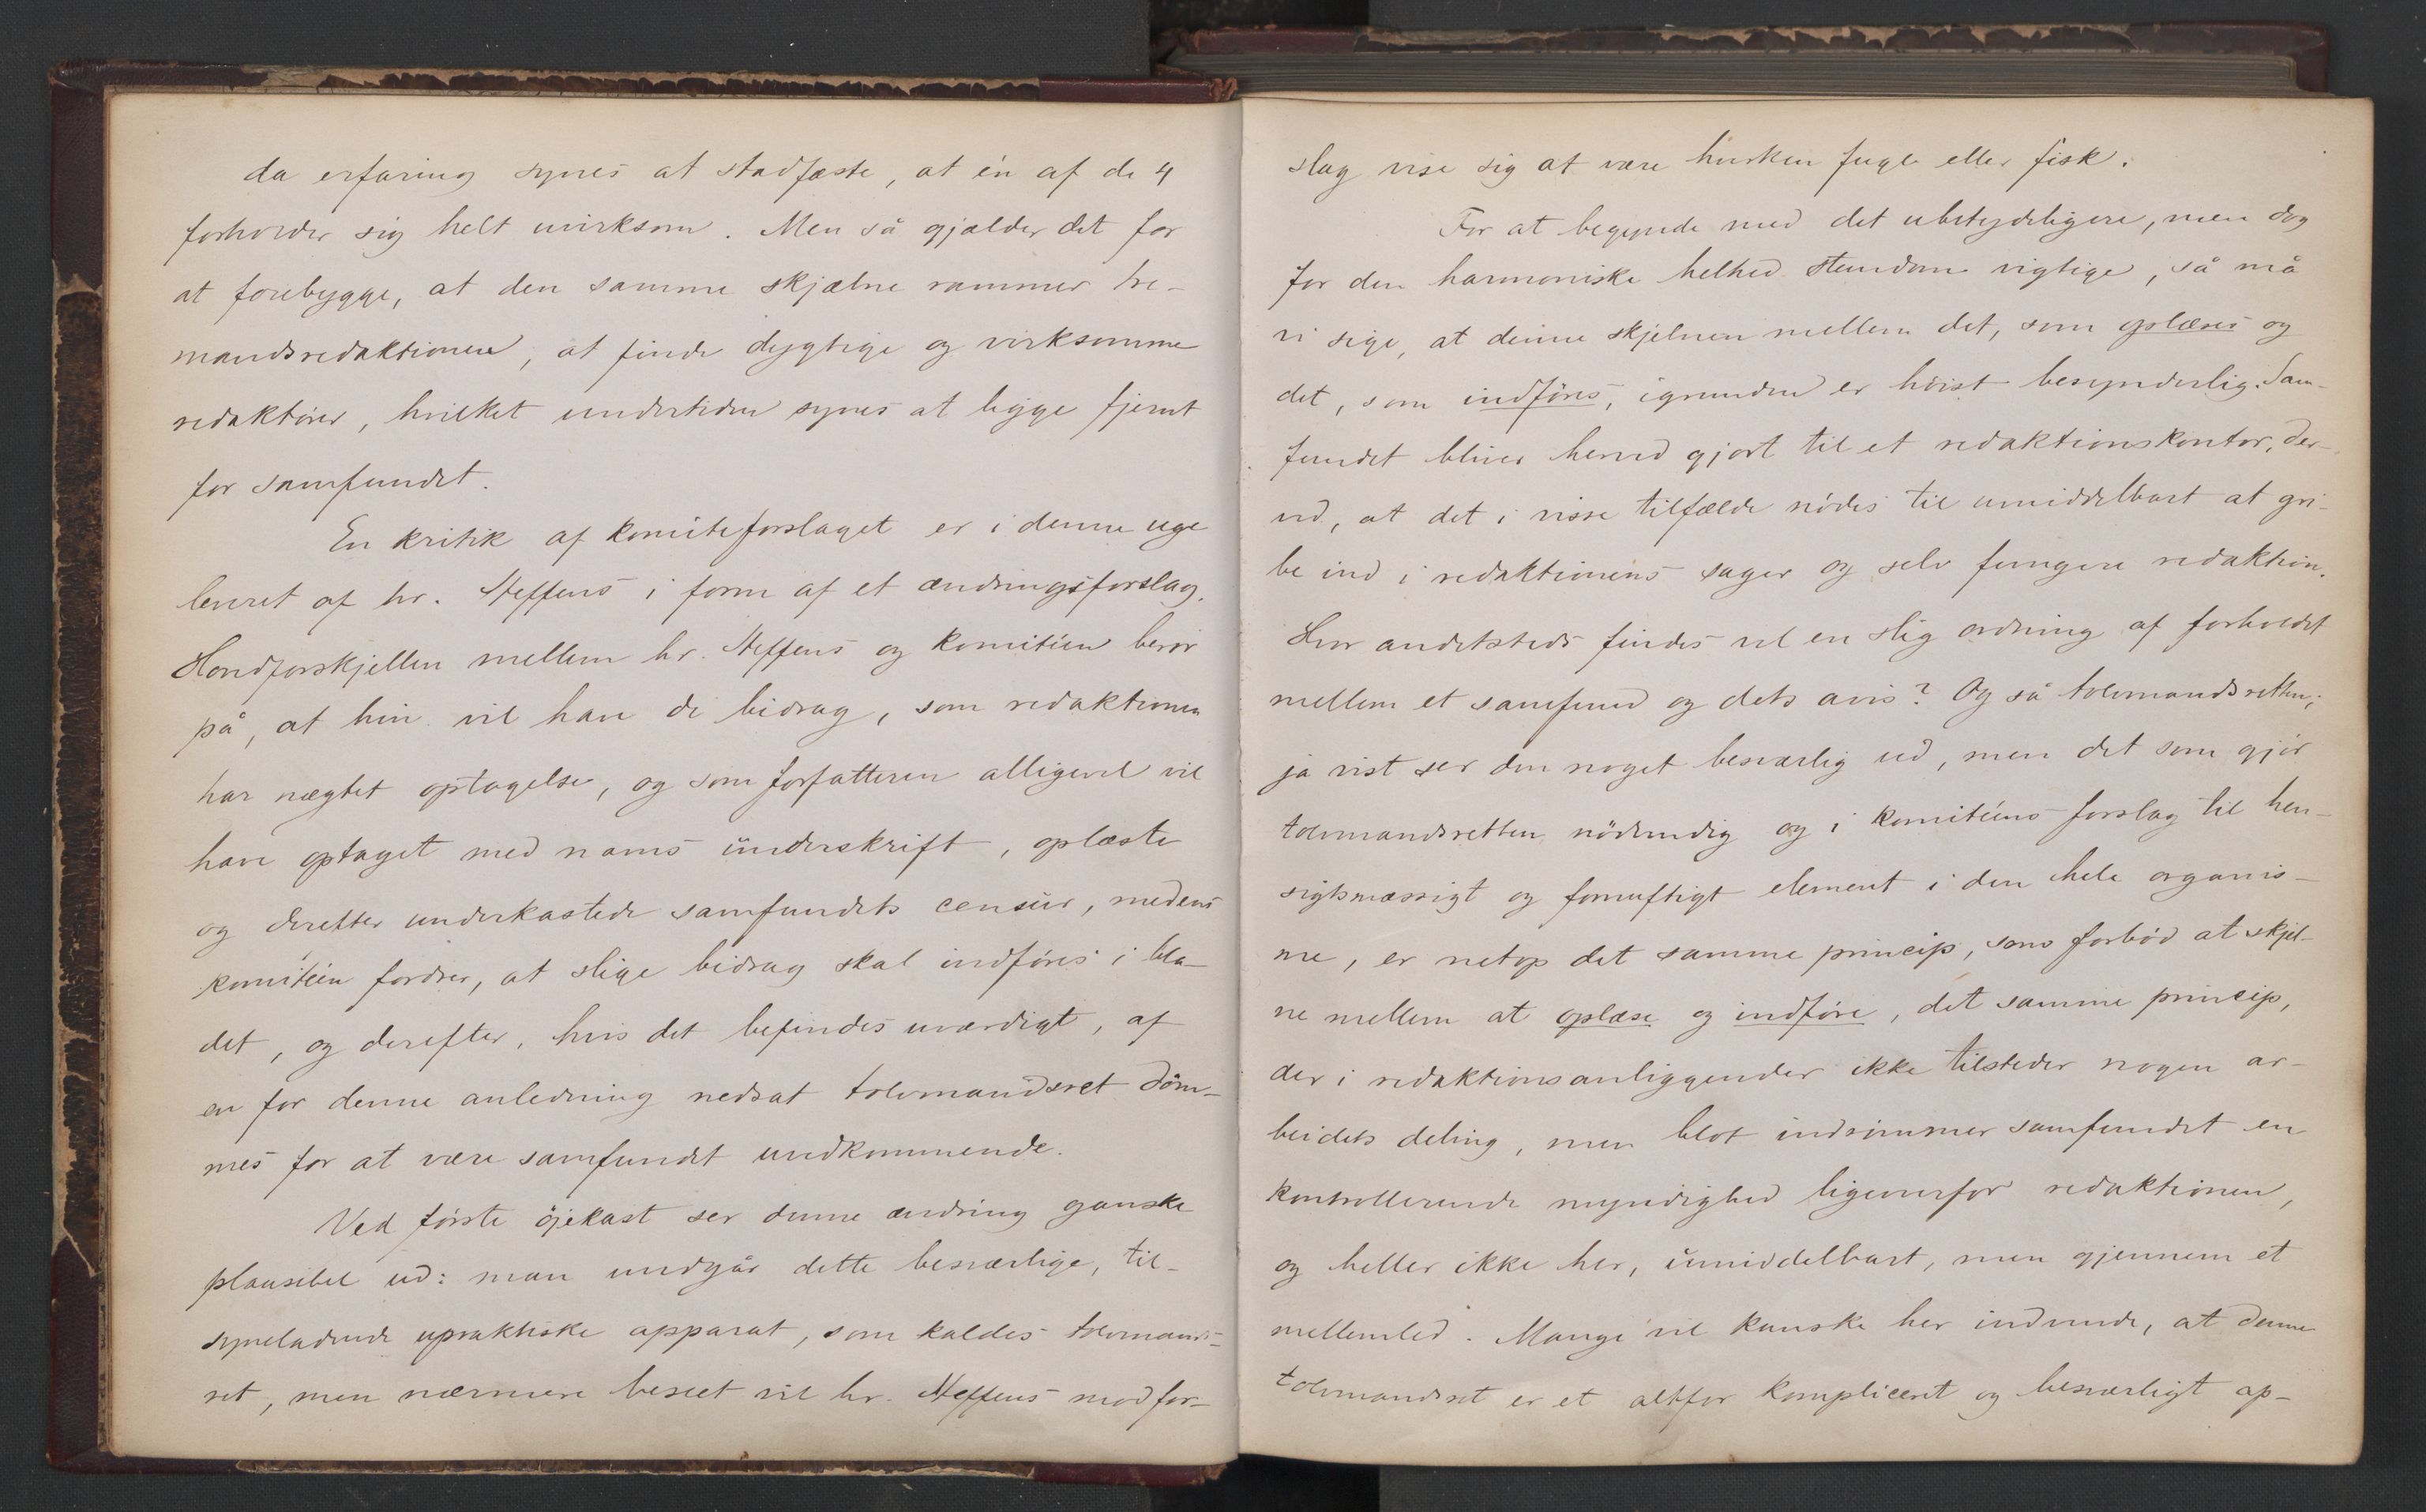 da erfaring synes at stadfæste, at én af de 4
forholder sig helt uvirksom. Men så gjælder det for
at forebygge, at den samme skjæbne rammer tre-
mandsredaktionen, at finde dygtige og virksomme
redaktører, hvilket undertiden synes at ligge fjernt
for samfundet.
En kritik af komiteforslaget er i denne uge
leveret af hr. Steffens i form af et ændringsforslag.
Hovedforskjellen mellem hr. Steffens og komitéen berør
på, at hin vil have de bidrag, som redaktionen
har nægtet optagelse, og som forfatteren alligevel vil
have optaget med navns underskrift, oplæste
og derefter underkastede samfundets censur, medens
komitéen fordrer, at slige bidrag skal indføres i bla-
det, og derefter, hvis det befindes uværdigt, af
en for denne anledning nedsat tolvmandsret döm-
mes for at være samfundet uvedkommende.
Ved første öjekast ser denne ændring ganske
plausibel ud: man undgår dette besværlige, til-
syneladende upraktiske apparat, som kaldes tolvmands-
ret, men nærmere beseet vil hr. Steffens modfor-
slag vise sig at være hverken fugl eller fisk.
For at begynde med det ubetydeligere, men dog
for den harmoniske helhed stundom vigtige, så må
vi sige, at denne skjelnen mellem det, som oplæses og
det, som indføres, igrunden er höist besynderlig. Sam-
fundet bliver herved gjort til et redaktionskontor, der-
ved, at det i visse tilfælde nödes til umiddelbart at gri-
be ind i redaktionens sager og selv fungere redaktion.
Hvor andetsteds findes vel en slig ordning af forholdet
mellem et samfund og dets avis? Og så tolvmandsretten;
ja vist ser den noget besværlig ud, men det som gjör
tolvmandsretten nödvendig og i komitéens forslag til hen-
sigtsmæssigt og fornuftigt element i den hele organis-
me, er netop det samme princip, som forböd at skjel-
ne mellem at oplæse og indføre, det samme princip,
der i redaktionsanliggender ikke tilsteder nogen ar-
beidets deling, men blot indrömmer samfundet en
kontrollerende myndighed ligeoverfor redaktionen,
og heller ikke her, umiddelbart, men gjennem et
mellemled. Mange vil kanske her indvende, at denne
tolvmandsret er et altfor kompliceret og besværligt ap-